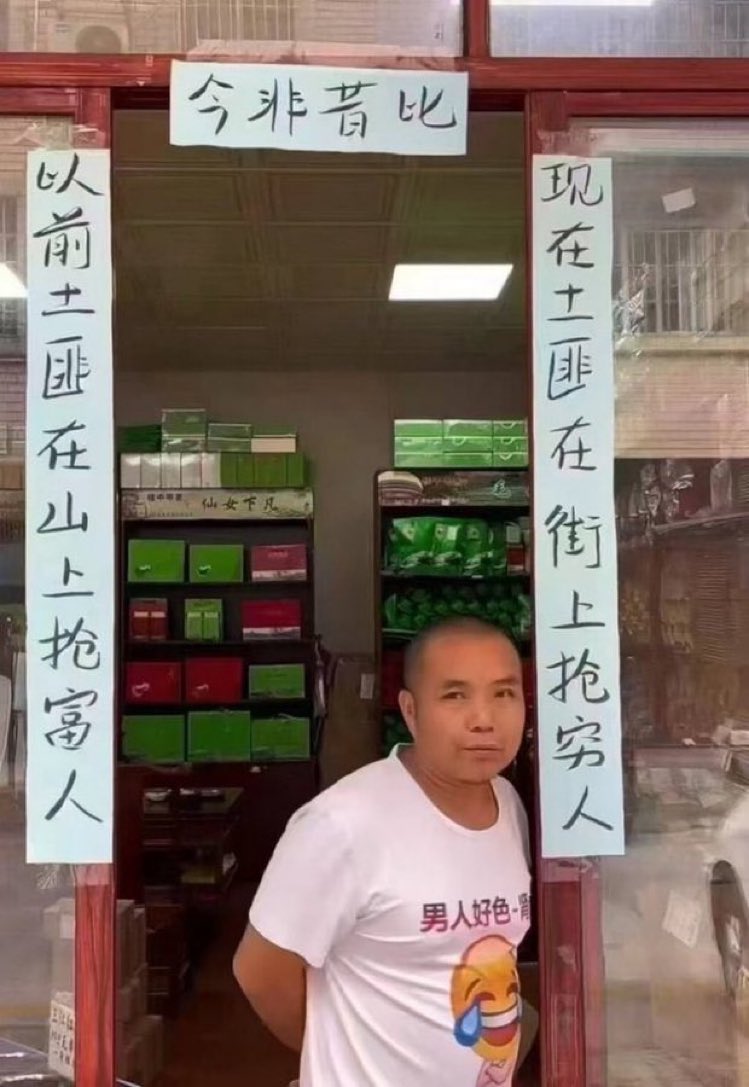 今非昔比
以前土匪在山上抢富人
现在土匪在街上抢穷人
仙女下凡
男人好色-